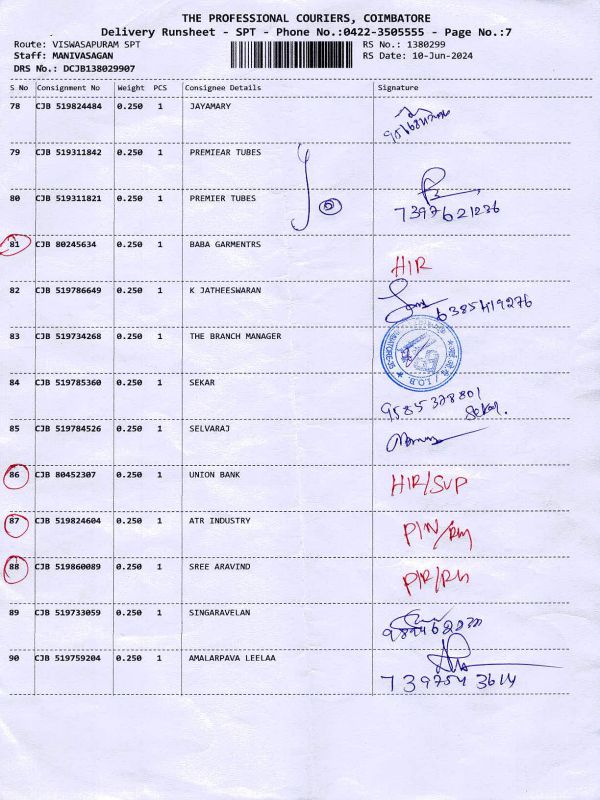 THE PROFESSIONAL COURIERS, COIMBATORE
Delivery Runsheet - SPT - Phone No.:0422-3505555 - Page No.:7
Route: VISWASAPURAM SPT RS No.: 1380299
Staff: MANIVASAGAN RS Date: 10-Jun-2024
DRS No.: DCJB138029907
S No Consignment No Weight PCS Consignee Details Signature
78 CJB 519824484 0.250 1 JAYAMARY
79 CJB 519311842 0.250 1 PREMIEAR TUBES
80 CJB 519311821 0.250 1 PREMIER TUBES
7397621236
81 CJB 80245634 0.250 1 BABA GARMENTRS
HIR
82 CJB 519786649 0.250 1 K JATHEESWARAN
6385419276
83 CJB 519734268 0.250 1 THE BRANCH MANAGER
I.O.B
84 CJB 519785360 0.250 1 SEKAR
9585328801
Sekar.
85 CJB 519784526 0.250 1 SELVARAJ
86 CJB 80452307 0.250 1 UNION BANK
HIR/SUP
87 CJB 519824604 0.250 1 ATR INDUSTRY
PIN/RM
88 CJB 519860089 0.250 1 SREE ARAVIND
89 CJB 519733059 0.250 1 SINGARAVELAN
90 CJB 519759204 0.250 1 AMALARPAVA LEELAA
7397543614